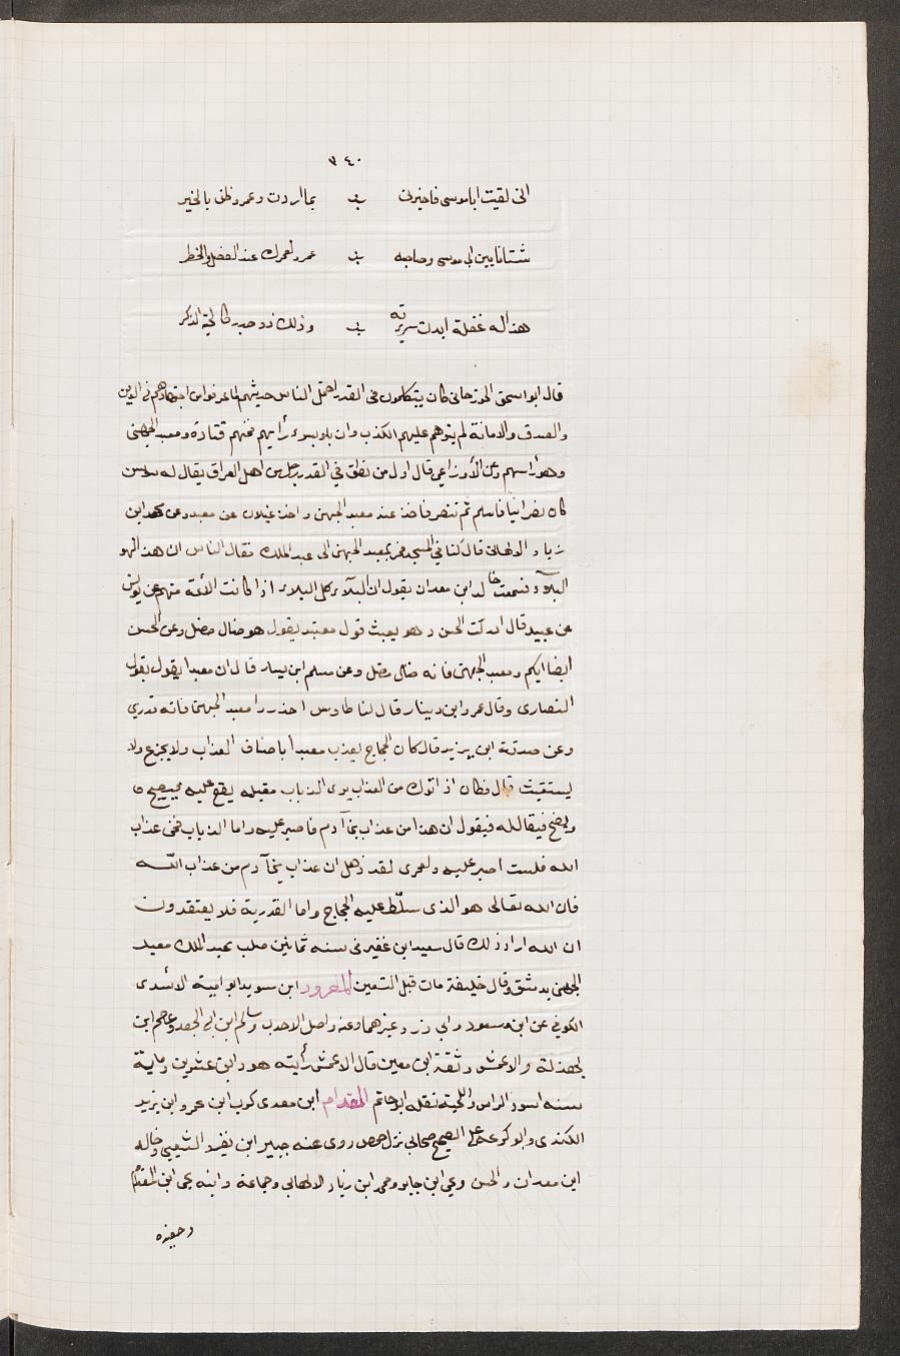 ٣٤٠
انى لقيت ابا موسى فاخبرنى بما اردت وعمرو ظن بالخير
شتانا بين ابى موسى وصاحبه عمرو لعمرك عند الفضل والخطر
هذا له غفلة ابدت سريرته وذلك ذو حذر كالحية الذكر
قال ابو اسحق الجوزجانى كان يتكلمون فى القدر احتمل الناس حديثهم لما عرفوا من اجتهادهم فى الدين
والصدق والامانة لم يتوهم عليهم الكذب وان بلوا بسوء رأيهم فمنهم قتادة ومعبد الجهنى
وهو رأسهم وعن الأوزاعى قال اول من نطق فى القدر رجل من اهل العراق يقال له سوسن
كان نصرانياً فاسلم ثم تنصر فاخذ عنه معبد الجهنى واخذ غيلان عن معبد وعن محمد ابن
زياد الالهانى قال كنا فى المسجد فمر بمعبد الجهنى الى عبد الملك فقال الناس ان هذا لهو
البلاء فسمعت خالد ابن معدان يقول ان البلاء كل البلاء اذا كانت الأئمة منهم عن يونس
عن عبيد قال ادركت الحسن وهو يعيب قول معبد يقول هو ضال مضل وعن الحسن
ايضا اياكم ومعبد الجهنى فانه ضال مضل وعن مسلم ابن يسار قال ان معبدا يقول بقول
النصارى وقال عمرو ابن دينار قال لنا طاوس احذروا معبد الجهنى فانه قدرى
وعن صدقة ابن يزيد قال كان الحجاج يعذب معبداً باصناف العذاب ولا يجزع ولا
يستغيث قال فكان اذا ترك من العذاب يرى الذباب مقبلة يقع عليه فيصيح
ويضج فيقال له فيقول ان هذا من عذاب بنى آدم فاصبر عليه واما الذباب فمن عذاب
الله فلست اصبر عليه ولعمرى لقد ذهل ان عذاب بنى آدم من عذاب الله
فان الله تعالى هو الذى سلّط عليه الحجاج واما القدرية فلا يعتقدون
ان الله اراد ذلك قال سعيد ابن عفير فى سنه ثمانين صلب عبد الملك معبد
الجهنى بدمشق وقال خليفة مات قبل التسعين المعرور ابن سويد ابو امية الاسدى
الكوفى عن ابن مسعود وابى ذر وغيرهما وعنه واصل الاحدب وسالم ابن ابى الجعد وعاصم ابن
بهدلة والاعمش وثقة ابن معين قال الاعمش رأيته هو وابن عشرين وماية
سنه اسود الراس واللحية نقله ابو حاتم المقدام ابن معدى كرب ابن عمرو ابن يزيد
الكندى وابو كريمة على الصحيح صحابى نزل حمص روى عنه جبير ابن نفير الشعبى وخالد
ابن معدان والحسن ويحى ابن جابر ومحمد ابن زياد الالهانى وجماعة وابنه يحى ابن المقدام
وحفيده